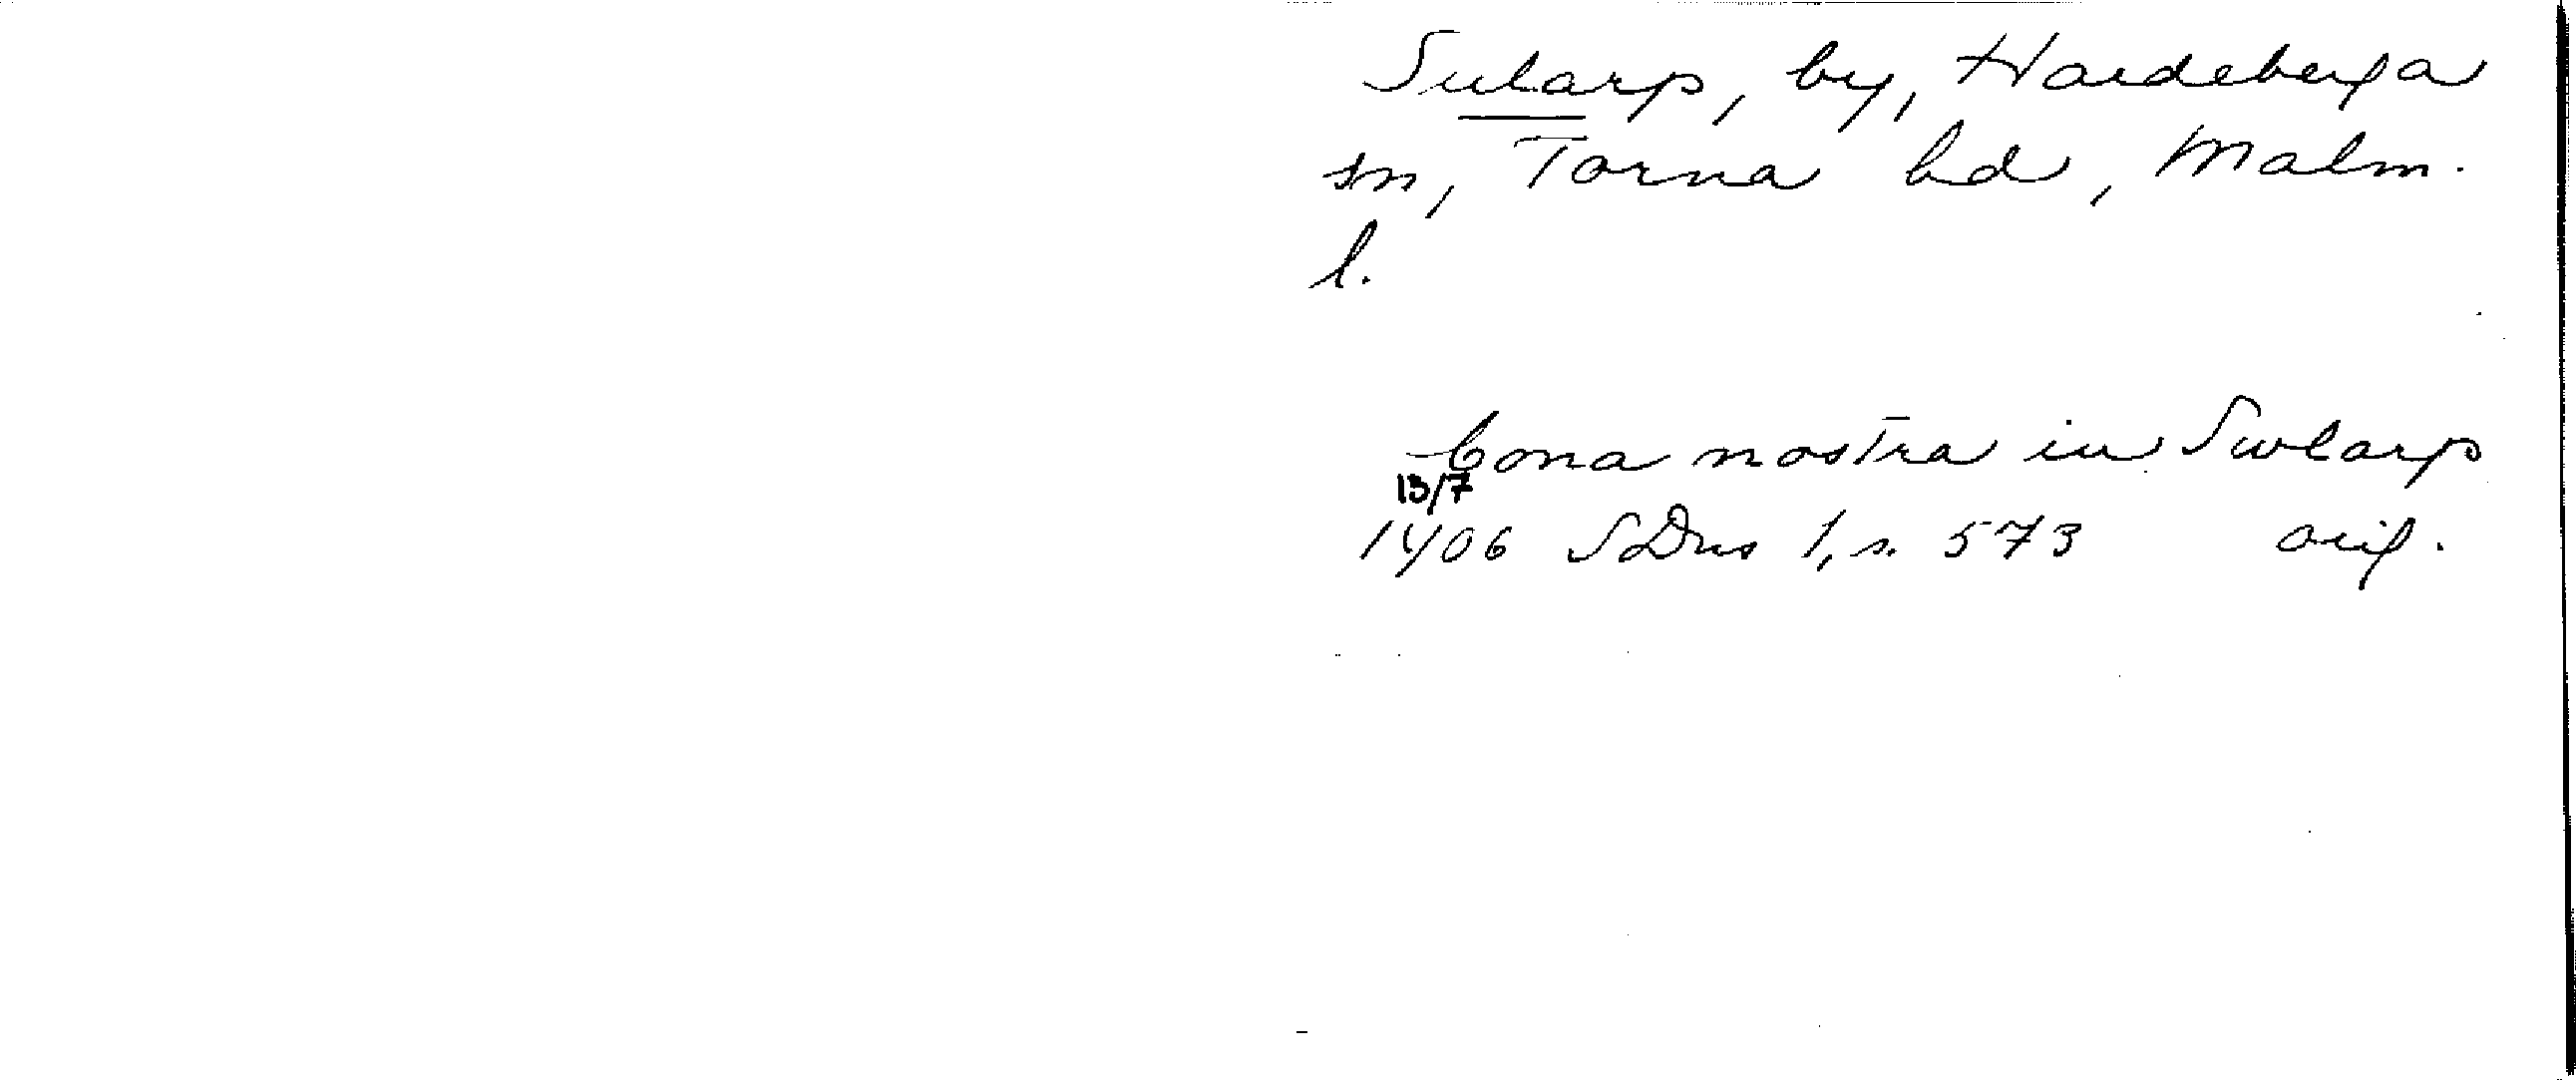 Sularp, by, Hardeberga
sn, Torna hd, Malm.
l.
bona nostra in Swlarp
13/7
1406 SDns 1, s. 573 orig.